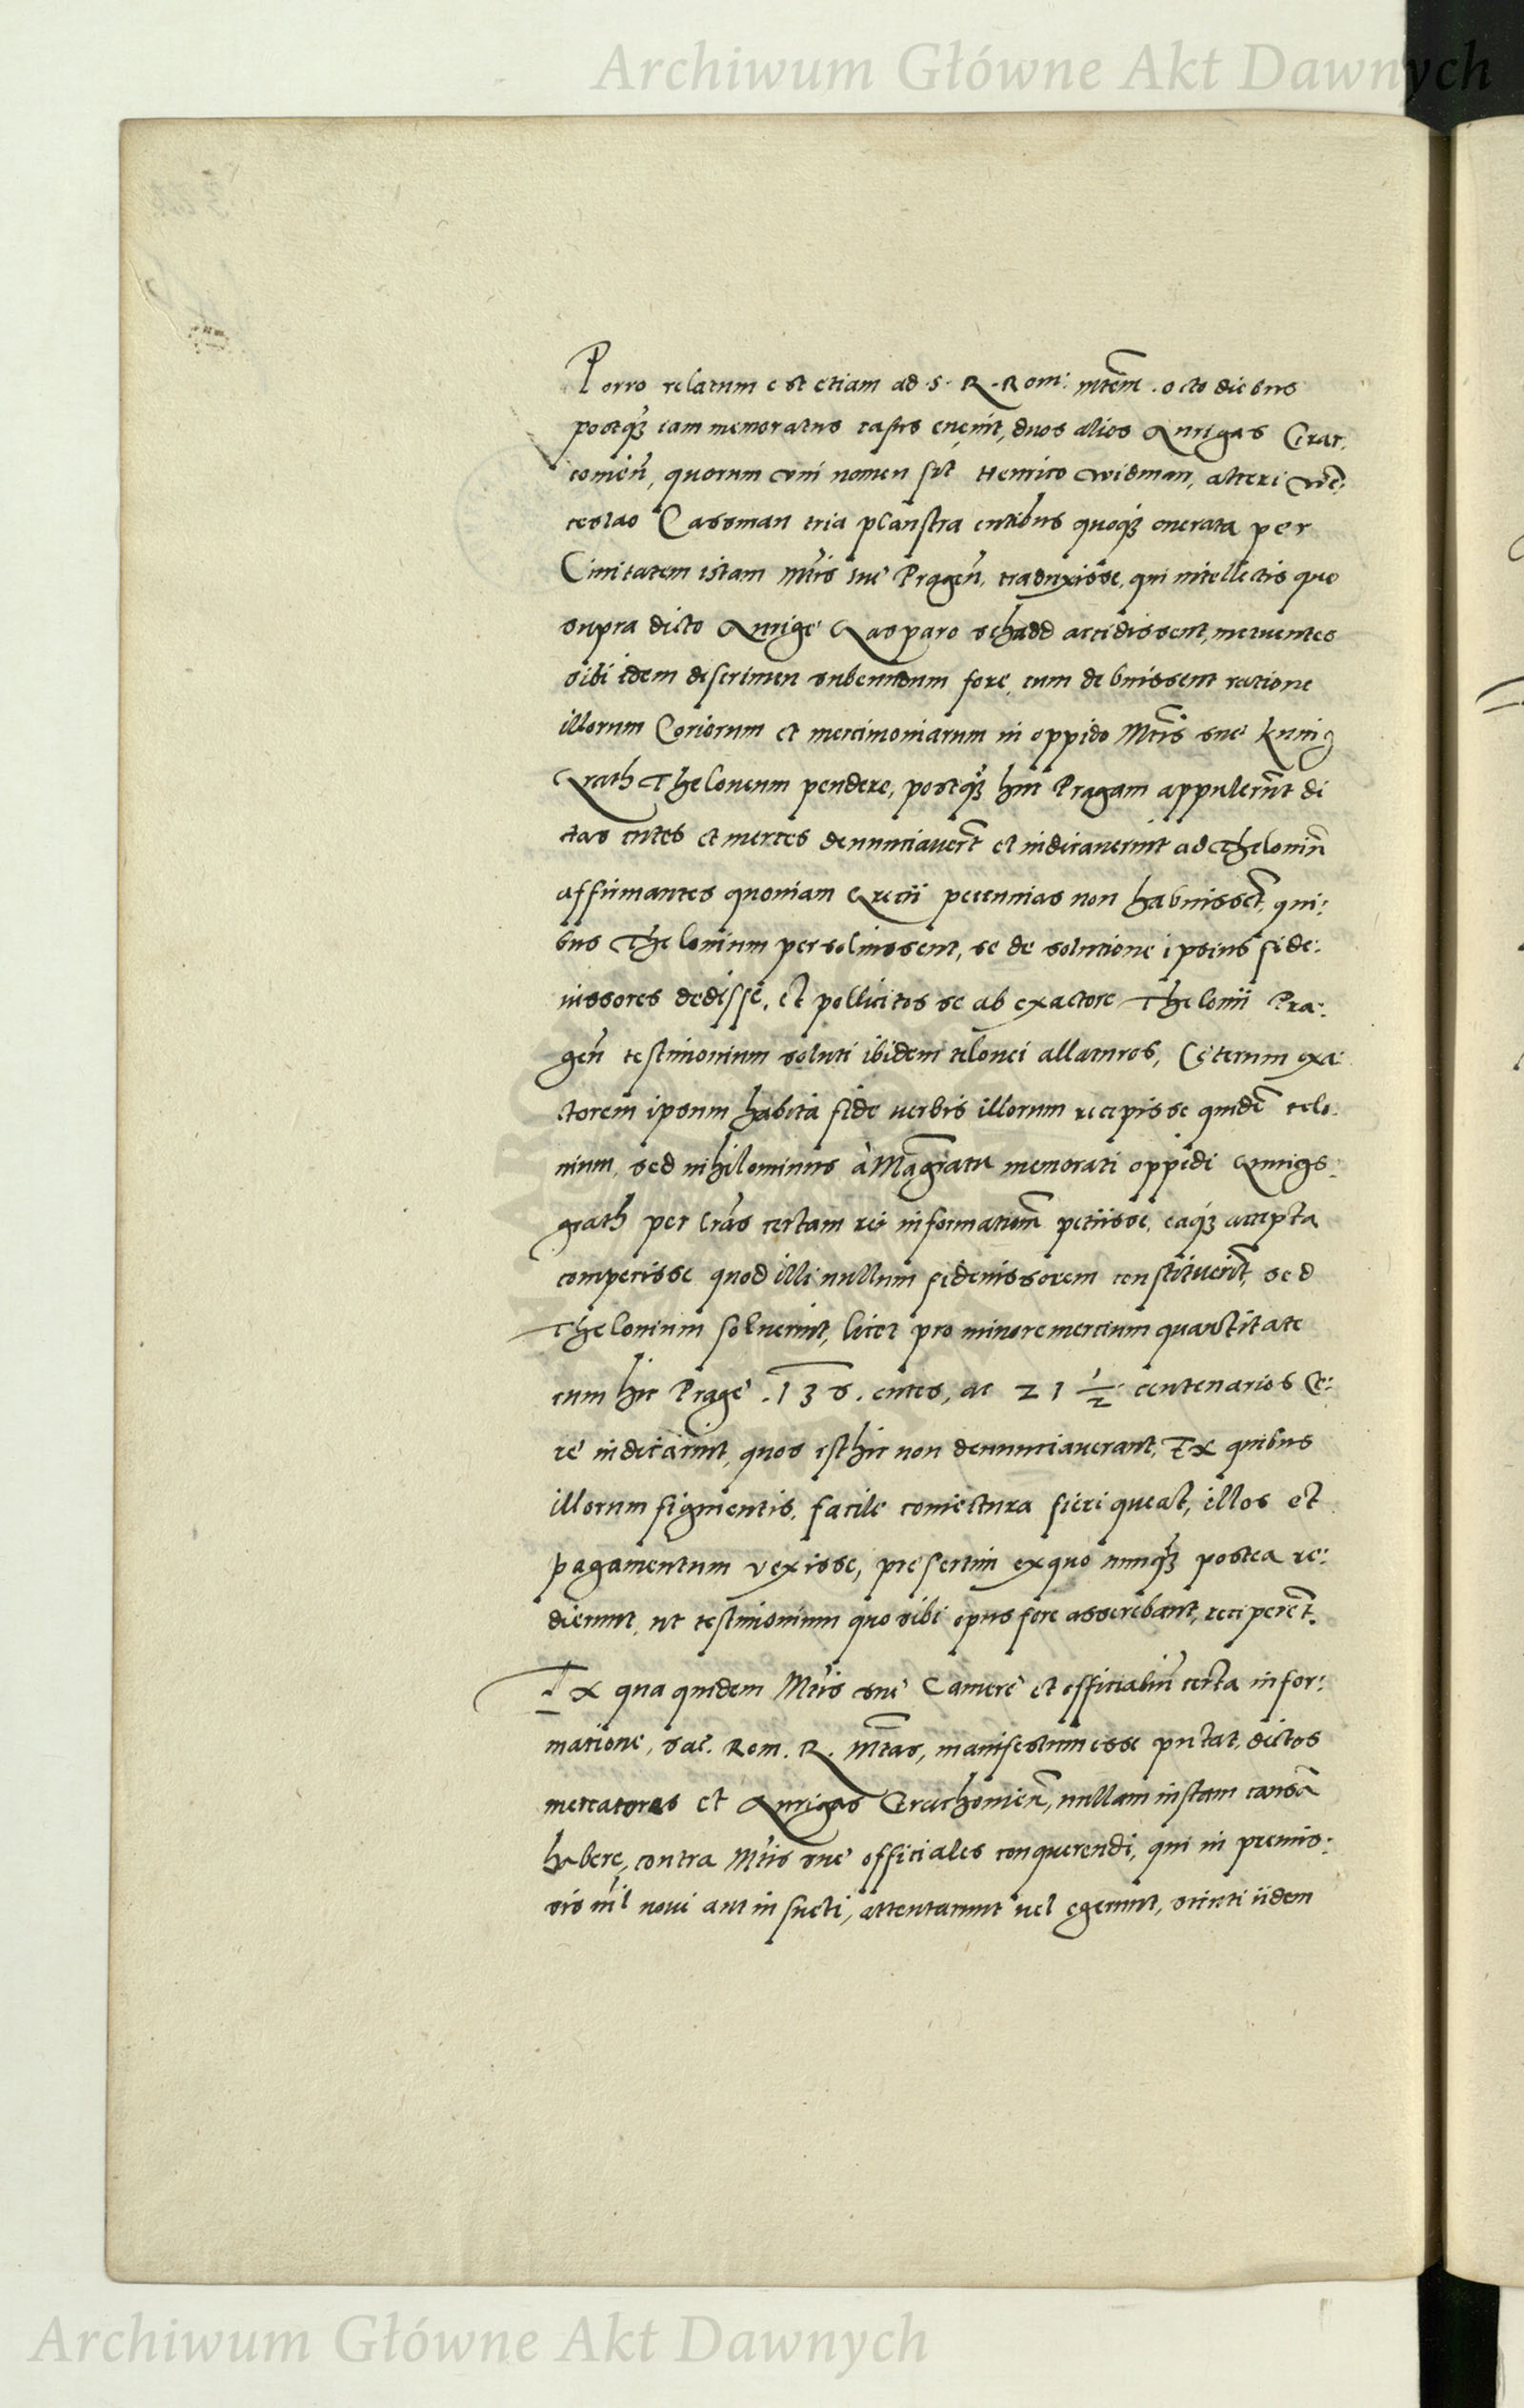 Archiwum Główne Akt Dawnych
Porro relatum est etiam ad .S. R. Rom: Mtem. octo diebus
postq3 iam memoratus casus evenit, duos alios Aurigas Crac:
covien, quorum uni nomen sit Henrico Widman, alteri Wen:
ceslao Cassman tria plaustra cutibus quoq3 onerata per
Civitatem istam Mtis sue Pragen. traduxisse, qui intellectis que
supra dicto Aurige Casparo Schadd accidissent, metuentes
sibi idem discrimen subeundum fore, cum debuissent ratione
illorum Coriorum et mercimoniarum in oppido Mtis sue Kunig
Grath Theloneum pendere, postq3 huc Pragam appulerunt di
ctas cutes et merces denunciaverunt et indicaverint ad Theloniu
affirmantes quoniam Grecii pecunias non habuissent, qui:
bus Thelonium persolvissent, se de solutione ipsius fide:
iussores dedisse, et pollicitos se ab exactore Thelonii Pra:
gen testimonium soluti ibidem telonei allaturos, Ceterum exa:
ctorem ipsum habita fide verbis illorum recepisse quidem telo:
nium, sed nihilominus à Magratu memorati oppidi Kunigs:
grath per lras certam rei informationem petiisse, eaq3 accepta
comperisse quod illi nullum fideiussorem constituerint, sed
Thelonium solverint, licet pro minore mercium quantitate
cum hic Prage .138. cutes, ac 21 1/2 centenarios Ce:
re indicarint, quos isthic non denunciaverant, Ex quibus
illorum figmentis, facile coniectura fieri queat, illos et
pagamentum vexisse, presertim ex quo nunq3 postea re:
dierunt, ut testimonium quo sibi opus fore asserebant, reciperent.
Ex qua quidem Mtis sue Camere et officialiu certa infor:
matione, Sac. Rom. R. Mtas, manifestum esse putat, dictos
mercatores et Aurigas Crachovien, nullam iustam causa
habere, contra Mtis sue officiales conquerendi, qui in premis:
sis nil novi aut insueti, attentarunt vel egerunt, sicuti iidem
Archiwum Główne Akt Dawnych